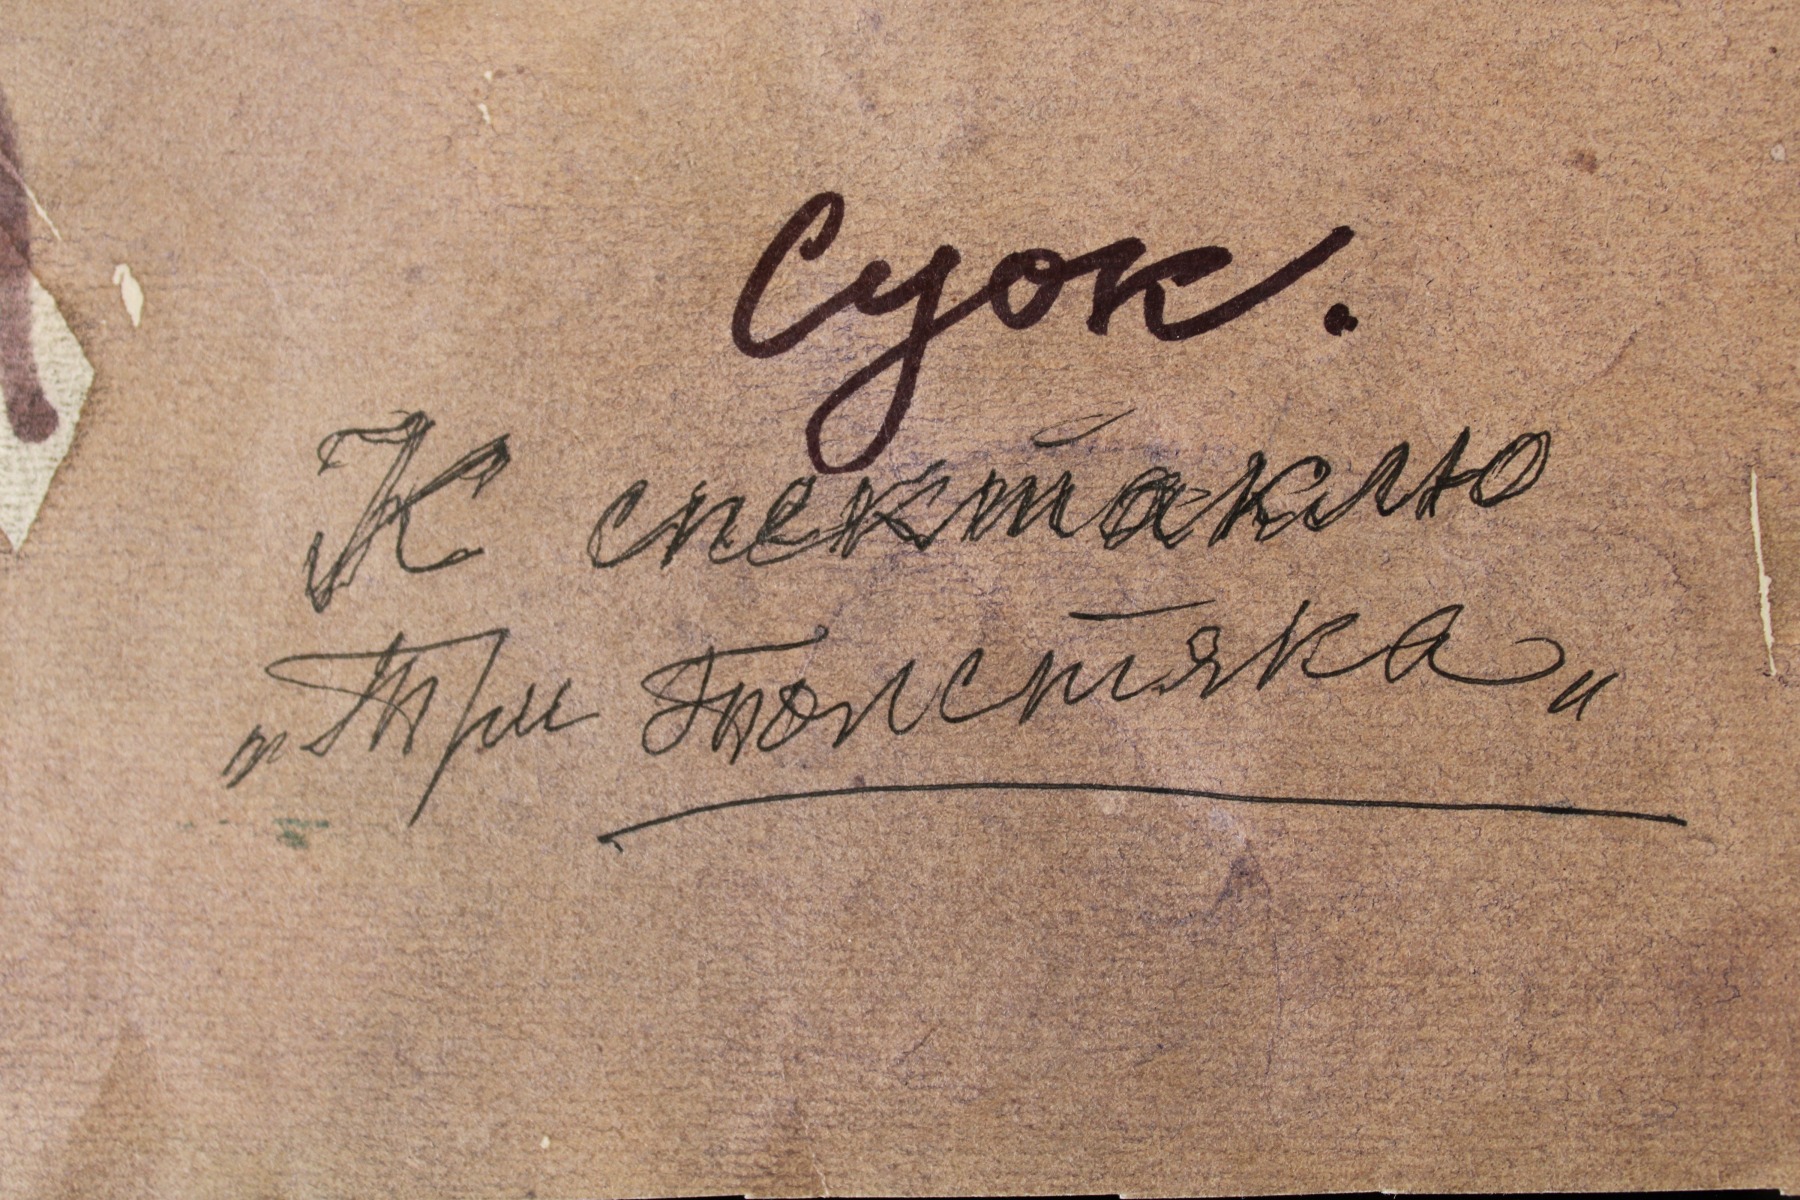 Суок.
К спектаклю
„Три Толстяка"